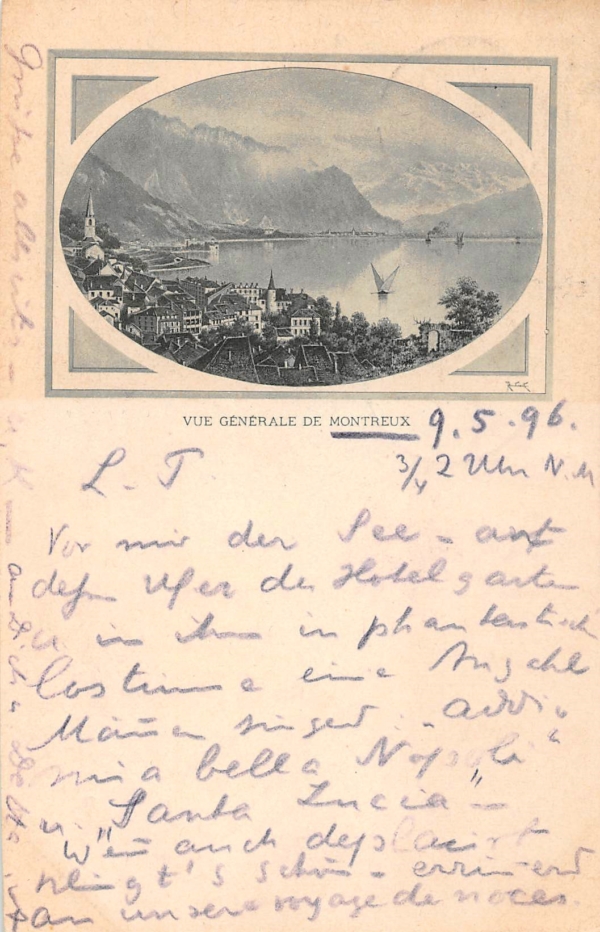 VUE GÉNÉRALE DE MONTREUX 9.5.96.
3/4 2 Uhr N.M
L. T.
Vor mir der See – auf
deßen Ufer der Hotelgarten
u. in ihm in phantastisch
Costüme eine Anzahl
Männer singend „addio
mia bella Napoli“
u. „Santa Lucia“ –
Wenn auch deplacirt
klingt's schön – erinnernd
an unsere voyage de noces.
Grüße allerseits – u. K an Dich